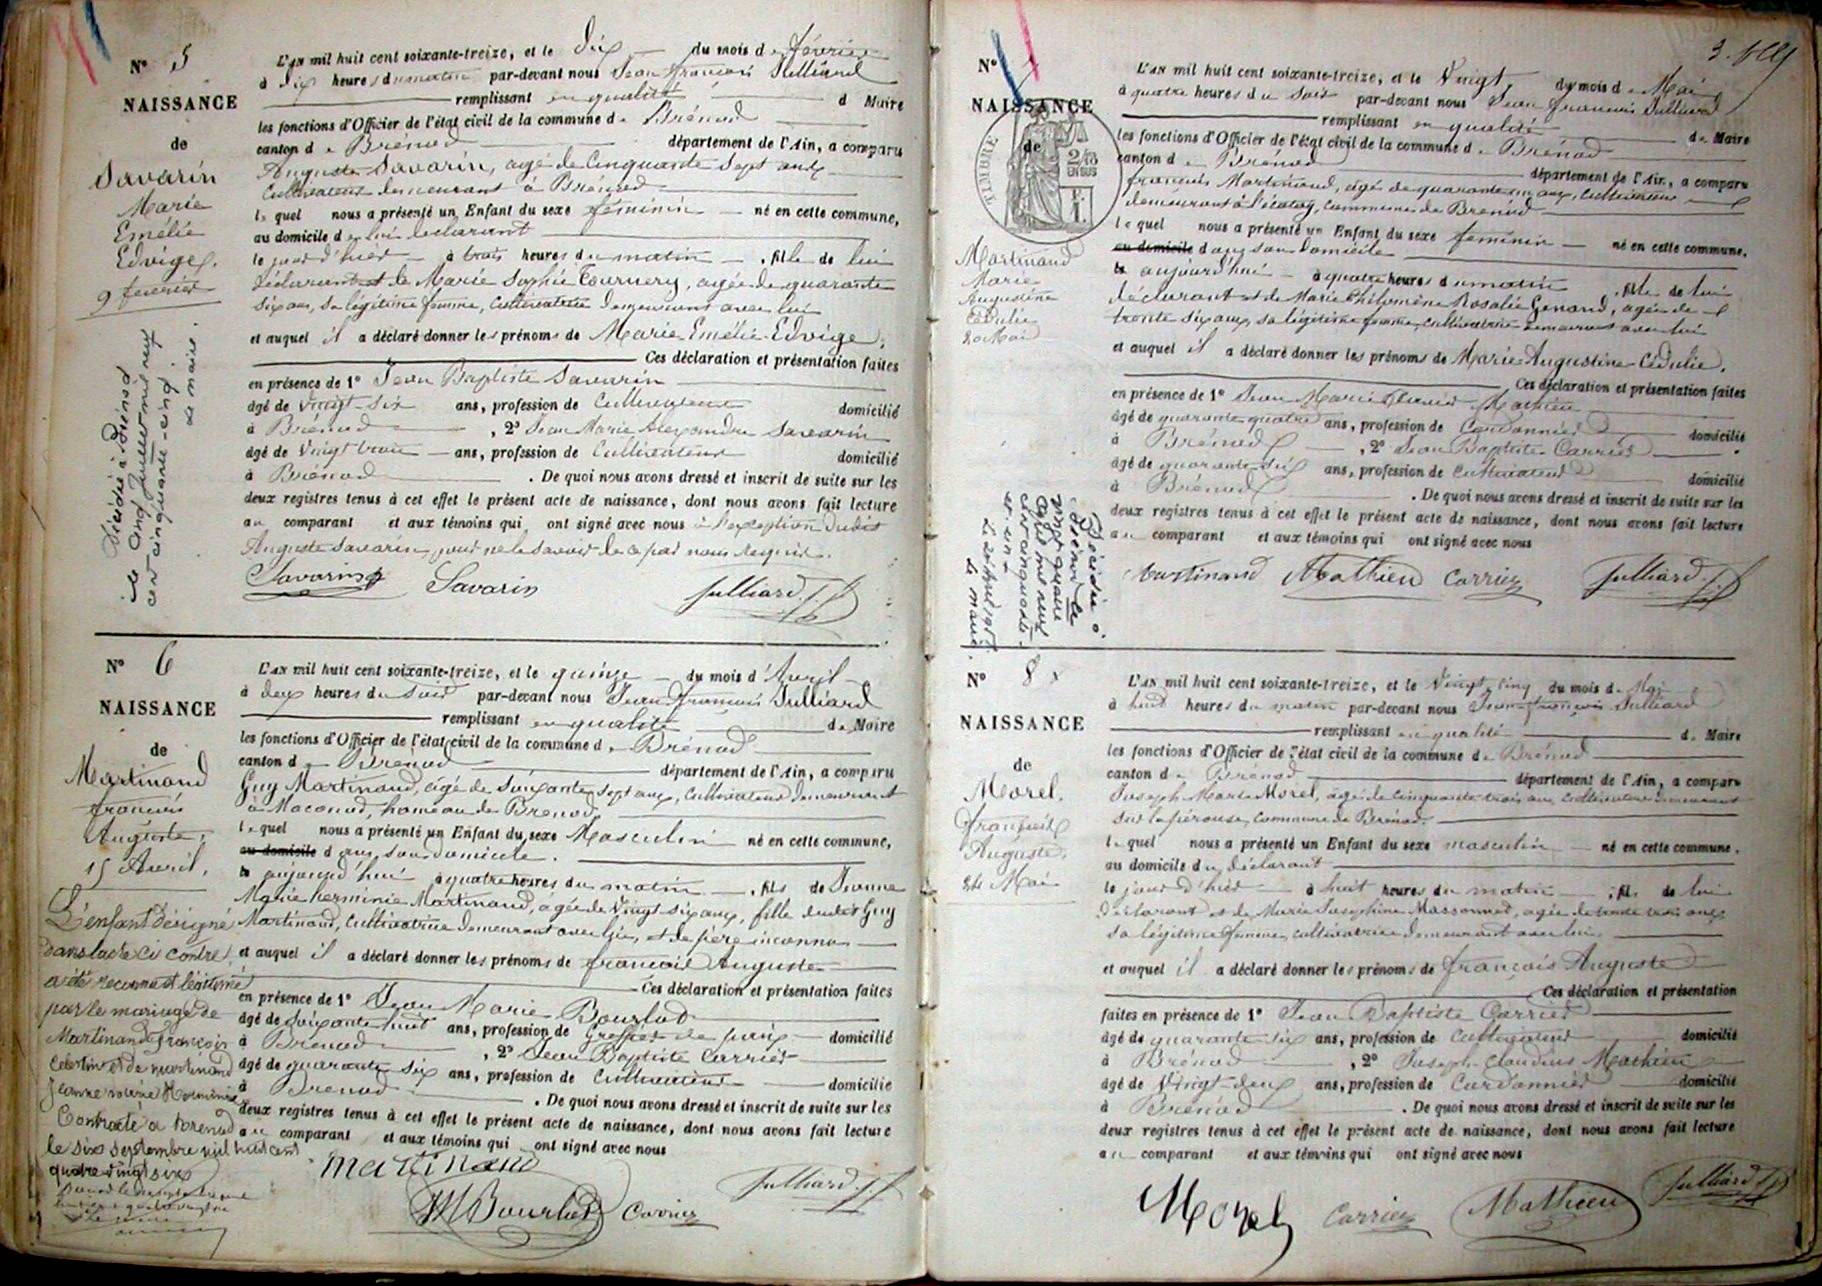 N° 5
NAISSANCE
de
Savarin
Marie
Emélie
Edvige.
9 février
Décédée à Brénod
le cinq juillet mil neuf
cent cinquante-cinq.
Le maire.
L'AN mil huit cent soixante-treize, et le dix du mois de février
à dix heures du matin par-devant nous Jean François Julliard
remplissant en qualité d Maire
les fonctions d'Officier de l'état civil de la commune de Brénod
canton de Brénod département de l'Ain, a comparu
Auguste Savarin, agé de Cinquante Sept ans
Cultivateur demeurant à Brénod
lequel nous a présenté un Enfant du sexe féminin né en cette commune,
au domicile de lui declarant
le jour d'hier à trois heures du matin, fille de lui
déclarant et de Marie Sophie Tournery, agée de quarante
six ans, sa légitime femme, Cultivatrice demeurant avec lui
et auquel il a déclaré donner les prénoms de Marie Emélie Edvige.
Ces déclaration et présentation faites
en présence de 1° Jean Baptiste Savarin
âgé de vingt-six ans, profession de Cultivateur domicilié
à Brénod, 2° Jean Marie Alexandre Savarin
âgé de Vingt trois ans, profession de Cultivateur domicilié
à Brénod. De quoi nous avons dressé et inscrit de suite sur les
deux registres tenus à cet effet le présent acte de naissance, dont nous avons fait lecture
au comparant et aux témoins qui ont signé avec nous à l'exception dudit
Auguste Savarin pour ne le savoir de ce par nous requis.
Savarin Savarin Julliard J.f
N° 6
NAISSANCE
de
Martinand
françois
Auguste,
15 Avril.
L'enfant désigné
dans l'acte ci contre
a été reconnu et légitimé
par le mariage de
Martinand François
Célestin et de Martinand
Jeanne Marie Herminie
Contracté à Brénod
le six septembre mil huit cent
quatre vingt six
L'AN mil huit cent soixante-treize, et le quinze du mois d'Avril
à deux heures du soir par-devant nous Jean françois Julliard
remplissant en qualité de Maire
les fonctions d'Officier de l'état civil de la commune de Brénod
canton de Brénod département de l'Ain, a comparu
Guy Martinand, agé de Soixante sept ans, Cultivateur demeurant
à Maconod, hameau de Brenod,
lequel nous a présenté un Enfant du sexe Masculin né en cette commune,
au domicile dans son domicile.
le aujourd'hui à quatre heures du matin, fils de Jeanne
Marie herminie Martinand, agée de Vingt six ans, fille dudit Guy
Martinand, Cultivatrice demeurant avec lui, et de père inconnu
et auquel il a déclaré donner les prénoms de françois Auguste
Ces déclaration et présentation faites
en présence de 1° Jean Marie Bourbod
âgé de soixante huit ans, profession de Greffier de paix domicilié
à Brenod, 2° Jean Baptiste Carrier
âgé de quarante six ans, profession de Cultivateur domicilié
à Brenod. De quoi nous avons dressé et inscrit de suite sur les
deux registres tenus à cet effet le présent acte de naissance, dont nous avons fait lecture
au comparant et aux témoins qui ont signé avec nous
Martinand
JM Bourbod Carrier Julliard J.f
3.
N°
NAISSANCE
de
TIMBRE
2/10
EN SUS
Martinand
Marie
Augustine
Cédulie
20 Mai
Décédée à
Brénod le
vingt quatre
mil neuf
cent cinquante
et un
Le maire.
L'AN mil huit cent soixante-treize, et le Vingt, du mois de Mai
à quatre heures du soir par-devant nous Jean francois Julliard
remplissant en qualité de Maire
les fonctions d'Officier de l'état civil de la commune de Brénod
canton de Brénod département de l'Ain, a comparu
françois Martinand, agé de quarante cinq ans, Cultivateur
demeurant à commune de Brenod
lequel nous a présenté un Enfant du sexe féminin né en cette commune,
au domicile dans son domicile
le aujourd'hui à quatre heures du matin, fille de lui
déclarant et de Marie Philomène Rosalie Genand, agée de
trente six ans, sa légitime femme, cultivatrice demeurant avec lui
et auquel il a déclaré donner les prénoms de Marie Augustine Cédulie.
Ces déclaration et présentation faites
en présence de 1° Jean Marie Mathieu
âgé de quarante quatre ans, profession de Cordonnier domicilié
à Brénod, 2° Jean Baptiste Carrier
âgé de quarante six ans, profession de Cultivateur domicilié
à Brénod. De quoi nous avons dressé et inscrit de suite sur les
deux registres tenus à cet effet le présent acte de naissance, dont nous avons fait lecture
au comparant et aux témoins qui ont signé avec nous
Martinand Mathieu Carrier Julliard J.f
N° 8 x
NAISSANCE
de
Morel.
françois
Auguste.
24 Mai
L'AN mil huit cent soixante-treize, et le Vingt cinq du mois de Mai
à huit heures du matin par-devant nous Jean françois Julliard
remplissant en qualité de Maire
les fonctions d'Officier de l'état civil de la commune de Brénod
canton de Brénod département de l'Ain, a comparu
Joseph Marie Morel, agé de Cinquante trois ans, Cultivateur demeurant
sur la pérouse, commune de Brenod.
lequel nous a présenté un Enfant du sexe masculin né en cette commune,
au domicile du déclarant
le jour d'hier à huit heures du matin, fils de lui
déclarant et de Marie Josephine Massonnet, agée de trente trois ans
sa légitime femme, cultivatrice demeurant avec lui.
et auquel il a déclaré donner les prénoms de françois Auguste
Ces déclaration et présentation
faites en présence de 1° Jean Baptiste Carrier
âgé de quarante six ans, profession de Cultivateur domicilié
à Brénod, 2° Joseph Claudius Mathieu
âgé de Vingt-deux ans, profession de Cordonnier domicilié
à Brénod. De quoi nous avons dressé et inscrit de suite sur les
deux registres tenus à cet effet le présent acte de naissance, dont nous avons fait lecture
au comparant et aux témoins qui ont signé avec nous
Morel Carrier Mathieu Julliard J.f